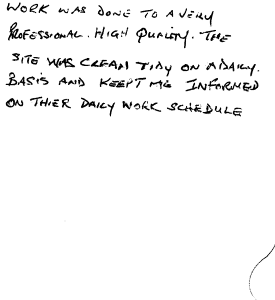 WORK WAS DONE TO A VERY
PROFESSIONAL. HIGH QUALITY. THE
SITE WAS CLEAN TIDY ON A DAILY.
BASIS AND KEEPT ME INFORMED
ON THIER DAILY WORK SCHEDULE